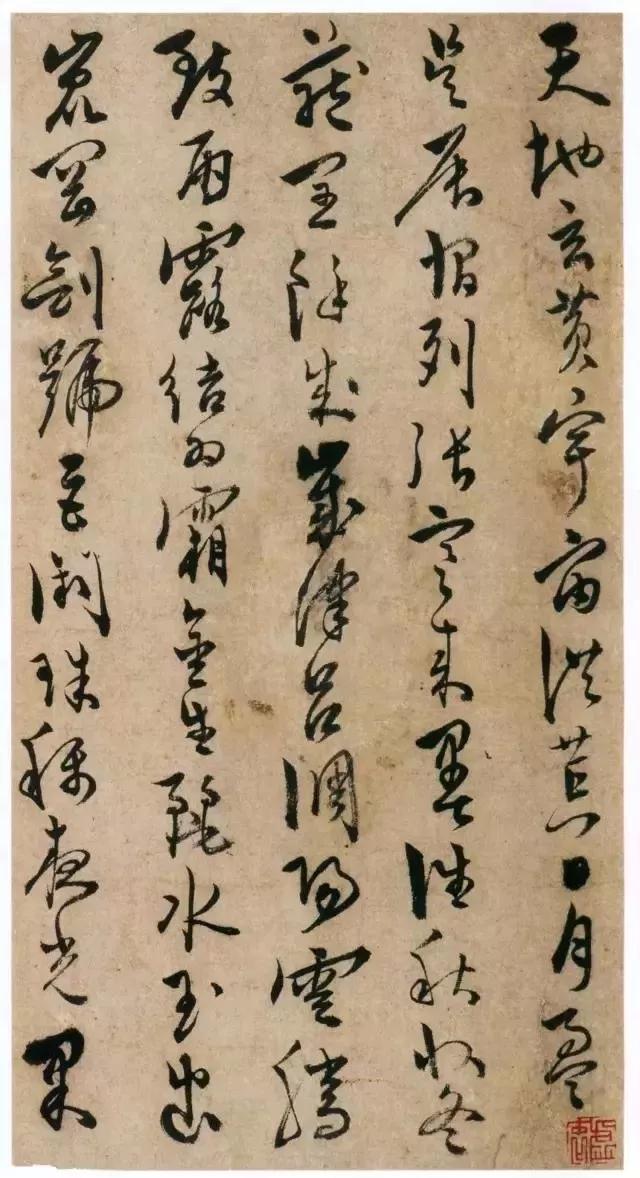 天地玄黄宇宙洪荒日月盈
昃辰宿列張寒来暑往秋收冬
藏閏餘成歲律吕調陽雲騰
致雨露結為霜金生麗水玉出
崑岡劍號巨闕珠稱夜光果